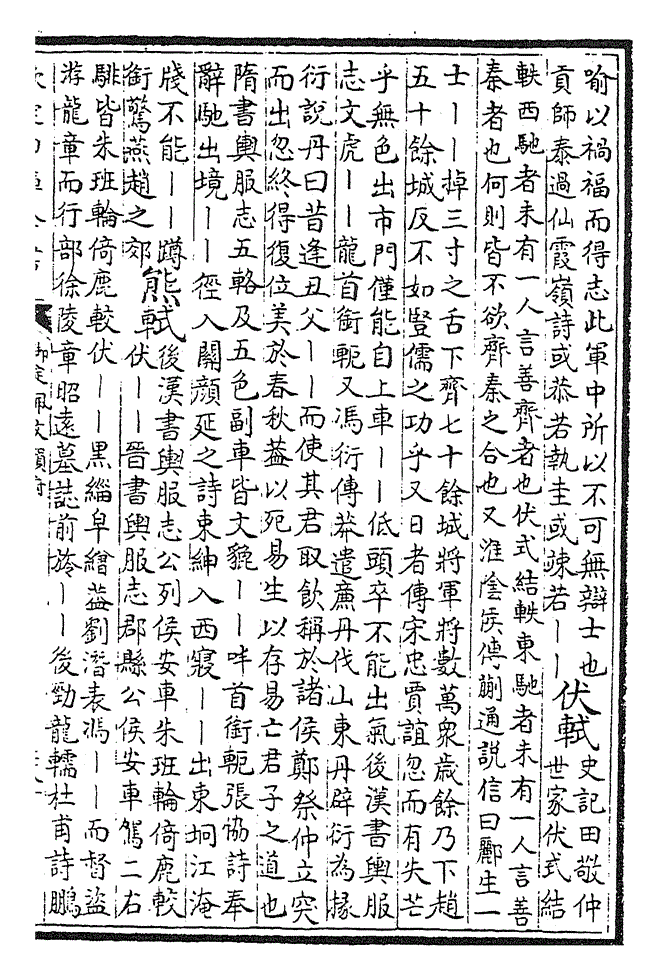 喻以禍福而得志此軍中所以不可無辯士也
貢師泰過仙霞嶺詩或恭若執圭或竦若丨丨
伏軾
史記田敬仲
世家伏式結
軼西馳者未有一人言善齊者也伏式結軼東馳者未有一人言善
秦者也何則皆不欲齊秦之合也又淮陰侯傳蒯通說信曰酈生一
士丨丨掉三寸之舌下齊七十餘城將軍將數萬衆歲餘乃下趙
五十餘城反不如豎儒之功乎又日者傳宋忠賈誼忽而有失芒
乎無色出市門僅能自上車丨丨低頭卒不能出氣後漢書輿服
志文虎丨丨龍首銜軛又馮衍傳莽遣廉丹伐山東丹辟衍為掾
衍說丹曰昔逢丑父丨丨而使其君取飲稱於諸侯鄭祭仲立突
而出忽終得復位美於春秋葢以死易生以存易亡君子之道也
隋書輿服志五輅及五色副車皆文貔丨丨哶首銜軛張協詩奉
辭馳出境丨丨徑入關顏延之詩東紳入西寢丨丨出東坰江淹
牋不能丨丨蹲
銜驚燕趙之郊
熊軾
後漢書輿服志公列侯安車朱班輪倚鹿較
伏丨丨晉書輿服志郡縣公侯安車駕二右
騑皆朱班輪倚鹿較伏丨丨黑緇皁繒葢劉潛表馮丨丨而督盜
游龍章而行部徐陵章昭遠墓誌前旍丨丨後勁龍轜杜甫詩鵬
御定佩文韻府